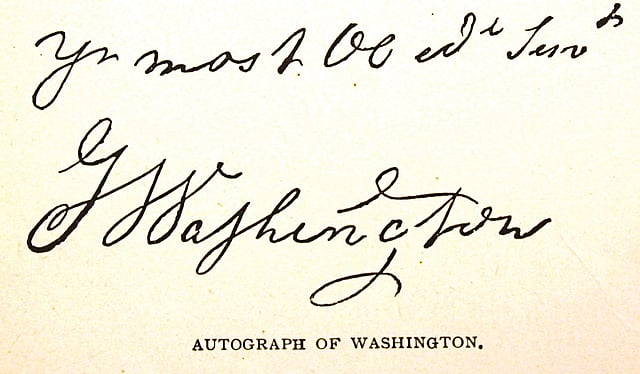 Yr most Obedt Servt
GWashington
AUTOGRAPH OF WASHINGTON.